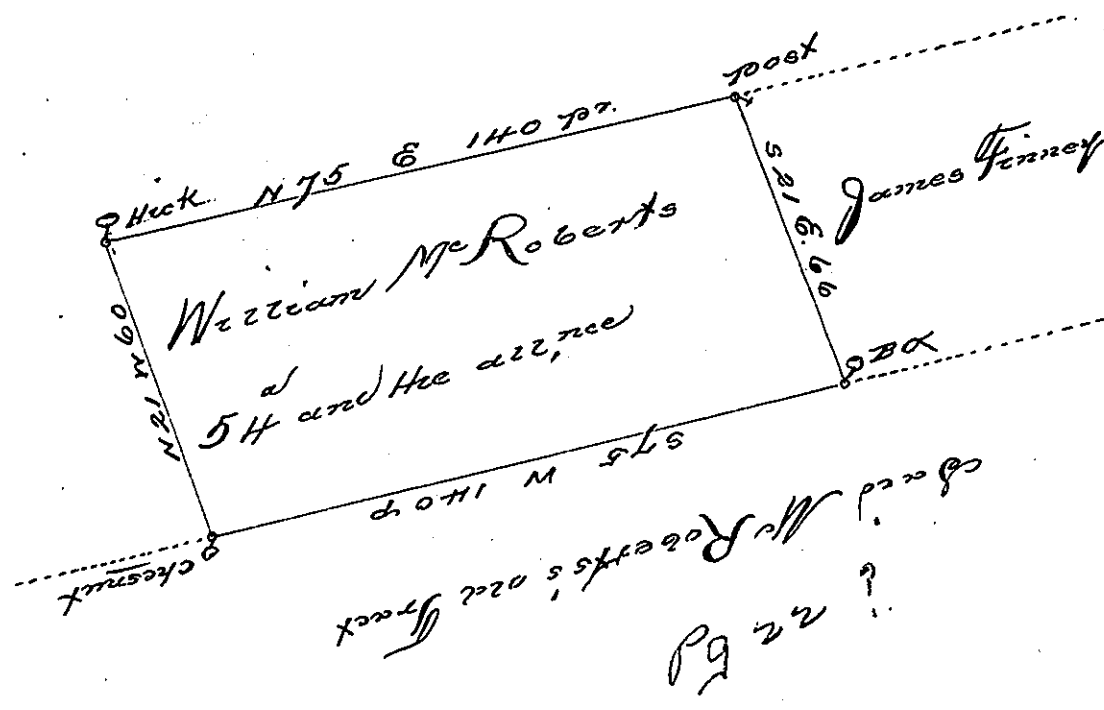 post
Hick N 75 E 140 pr.
S 21 E. 66
James Finney
William McRoberts
54 a and the all,nce
N 21 W 60
BO
S 75 W 140 p
Chesnut
Said McRoberts's old Tract